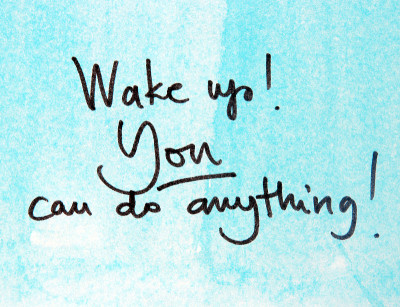 Wake up!
You
can do anything!